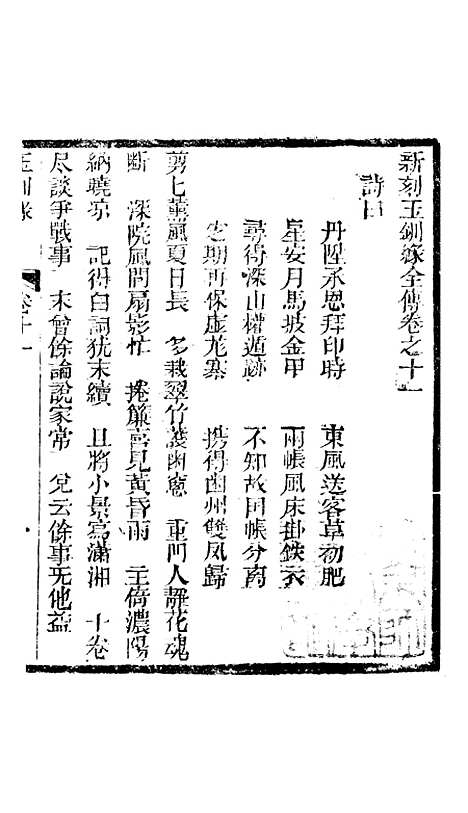 新刻玉釧緣全傳卷之十一
詩曰
丹陛承恩拜印時 東風送客草初肥
星安月馬坡金甲 雨帳風床掛鉄衣
尋得深山權遁跡 不知故囯帳分离
期再保虛龙寨 携得幽州雙凤歸
剪七薰風夏日長 多栽翠竹護幽窓 重門人靜花魂
断 深院風閒扇影忙 捲簾喜見黃昏雨 主倚濃陽
納曉凉 記得白詞犹未續 且將小景寫瀟湘 十卷
尽談爭戰事 末曾餘論說家常 兌云餘事无他益
玉釧緣 卷十一